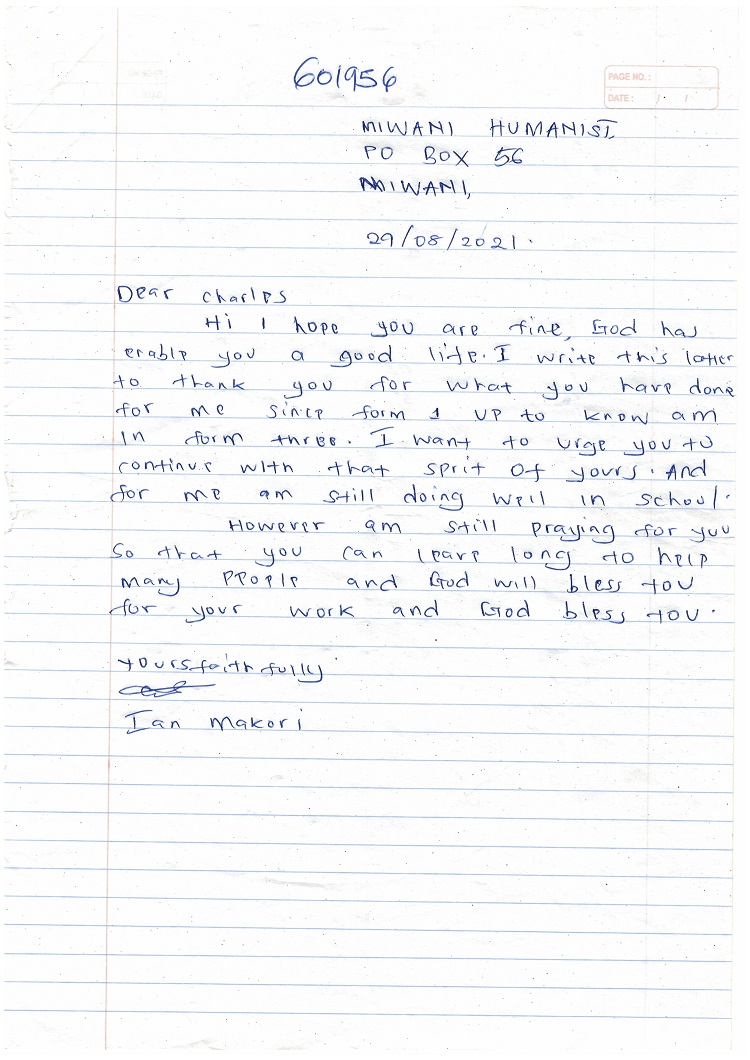 601956
PAGE NO.:
DATE: / /
MIWANI HUMANIST
PO BOX 56
MIWANI,
29/08/2021.
Dear Charles
Hi I hope you are fine, God has
enable you a good life. I write this latter
to thank you for what you have done
for me since form 1 up to know am
in form three. I want to urge you to
continue with that sprit of yours. And
for me am still doing well in school.
However am still praying for you
So that you can leave long to help
many people and God will bless you
for your work and God bless you.
Yours faithfully
Ian Makori